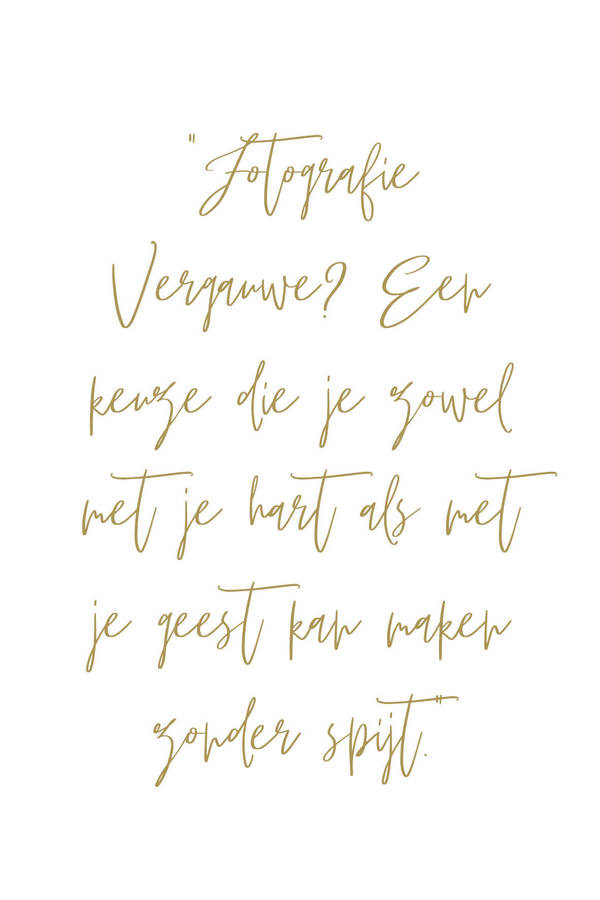 "Fotografie
Vergauwe? Een
keuze die je zowel
met je hart als met
je geest kan maken
zonder spijt."